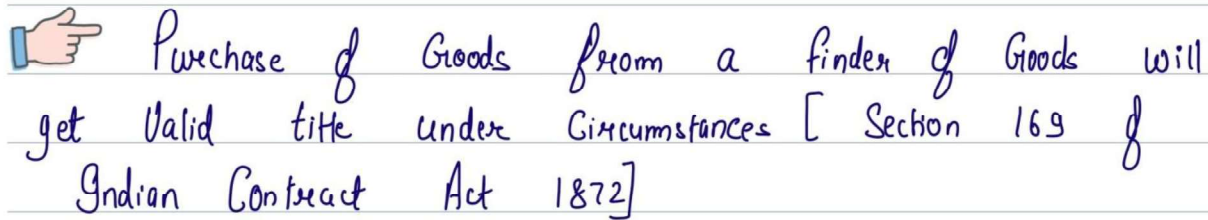 Purchase of Goods from a finder of Goods will
get Valid title under Circumstances [ Section 169 of
Indian Contract Act 1872]